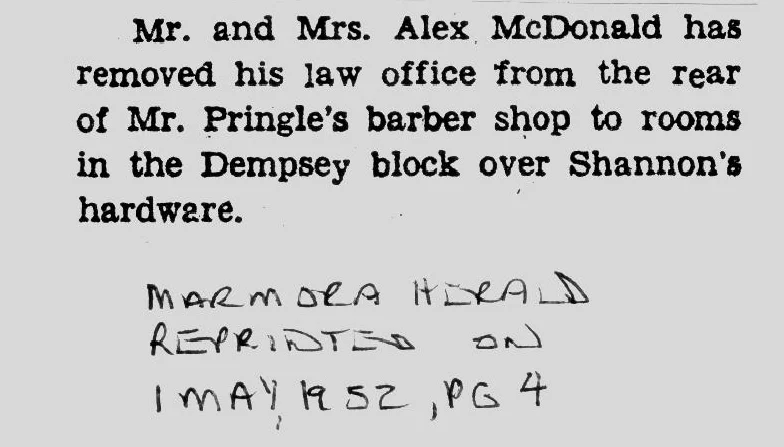 Mr. and Mrs. Alex McDonald has
removed his law office from the rear
of Mr. Pringle's barber shop to rooms
in the Dempsey block over Shannon's
hardware.
MARMORA HERALD
REPRINTED ON
1 MAY, 1952, PG 4